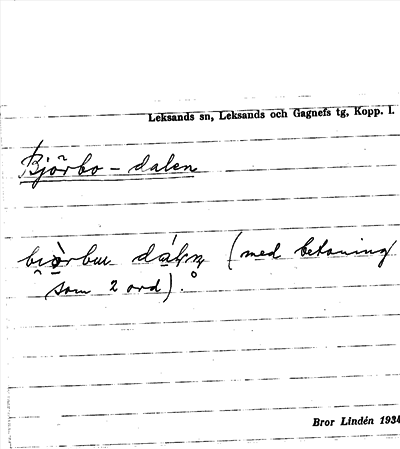 Leksands sn, Leksands och Gagnefs tg, Kopp. l.
Björbo - dalen
(med betoning
som 2 ord).
Bror Lindén 1934